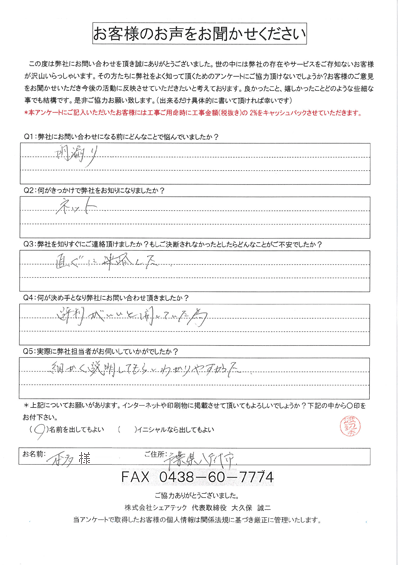 お客様のお声をお聞かせください
この度は弊社にお問い合わせを頂き誠にありがとうございました。世の中には弊社の存在やサービスをご存知ないお客様
が沢山いらっしゃいます。その方たちに弊社をよく知って頂くためのアンケートにご協力頂けないでしょうか?お客様のご意見
をお聞かせいただき今後の活動に反映させていただきたいと考えております。良かったこと、嬉しかったことどのような些細な
事でも結構です。是非ご協力お願い致します。(出来るだけ具体的に書いて頂ければ幸いです)
*本アンケートにご記入いただいたお客様には工事ご用命時に工事金額(税抜き)の2%をキャッシュバックさせていただきます。
Q1:弊社にお問い合わせになる前にどんなことで悩んでいましたか?
雨漏り
Q2:何がきっかけで弊社をお知りになりましたか?
ネット
Q3:弊社を知りすぐにご連絡頂けましたか?もしご決断されなかったとしたらどんなことがご不安でしたか?
直ぐに連絡した
Q4:何が決め手となり弊社にお問い合わせ頂きましたか?
評判がいいと聞いていた為
Q5:実際に弊社担当者がお伺いしていかがでしたか?
細かく説明してもらいわかりやすかった
*上記についてお願いがあります。インターネットや印刷物に掲載させて頂いてもよろしいでしょうか?下記の中から〇印を
お付下さい。
(〇)名前を出してもよい ( )イニシャルなら出してもよい
お名前: 様 ご住所: 千葉県八千代市
FAX 0438-60-7774
ご協力ありがとうございました。
株式会社シェアテック 代表取締役 大久保 誠二
当アンケートで取得したお客様の個人情報は関係法規に基づき厳正に管理いたします。